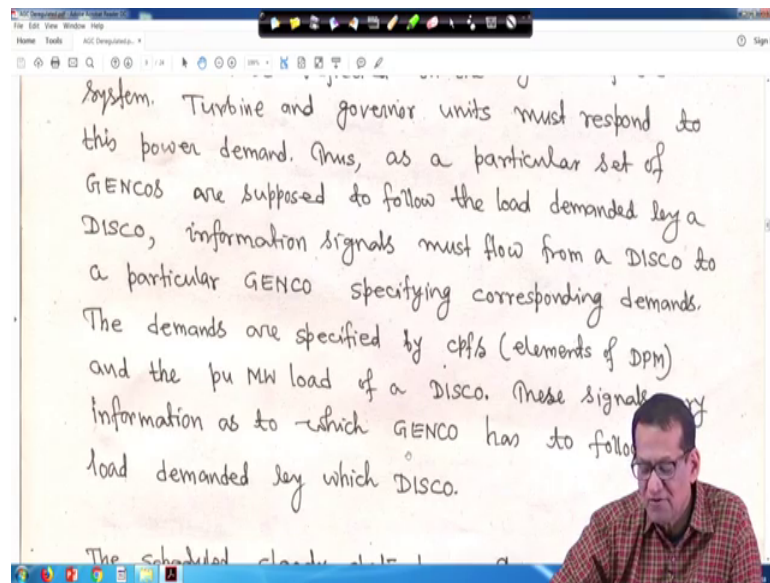 AGC Deregulated.pdf - Adobe Acrobat Reader DC
File Edit View Window Help
Home Tools AGC Deregulated.p... ×
Sign
system. Turbine and governor units must respond to
this power demand. Thus, as a particular set of
GENCOS are supposed to follow the load demanded by a
DISCO, information signals must flow from a DISCO to
a particular GENCO specifying corresponding demands.
The demands are specified by cpfs (elements of DPM)
and the pu MW load of a DISCO. These signals
information as to which GENCO has to follow
load demanded by which DISCO.
The scheduled